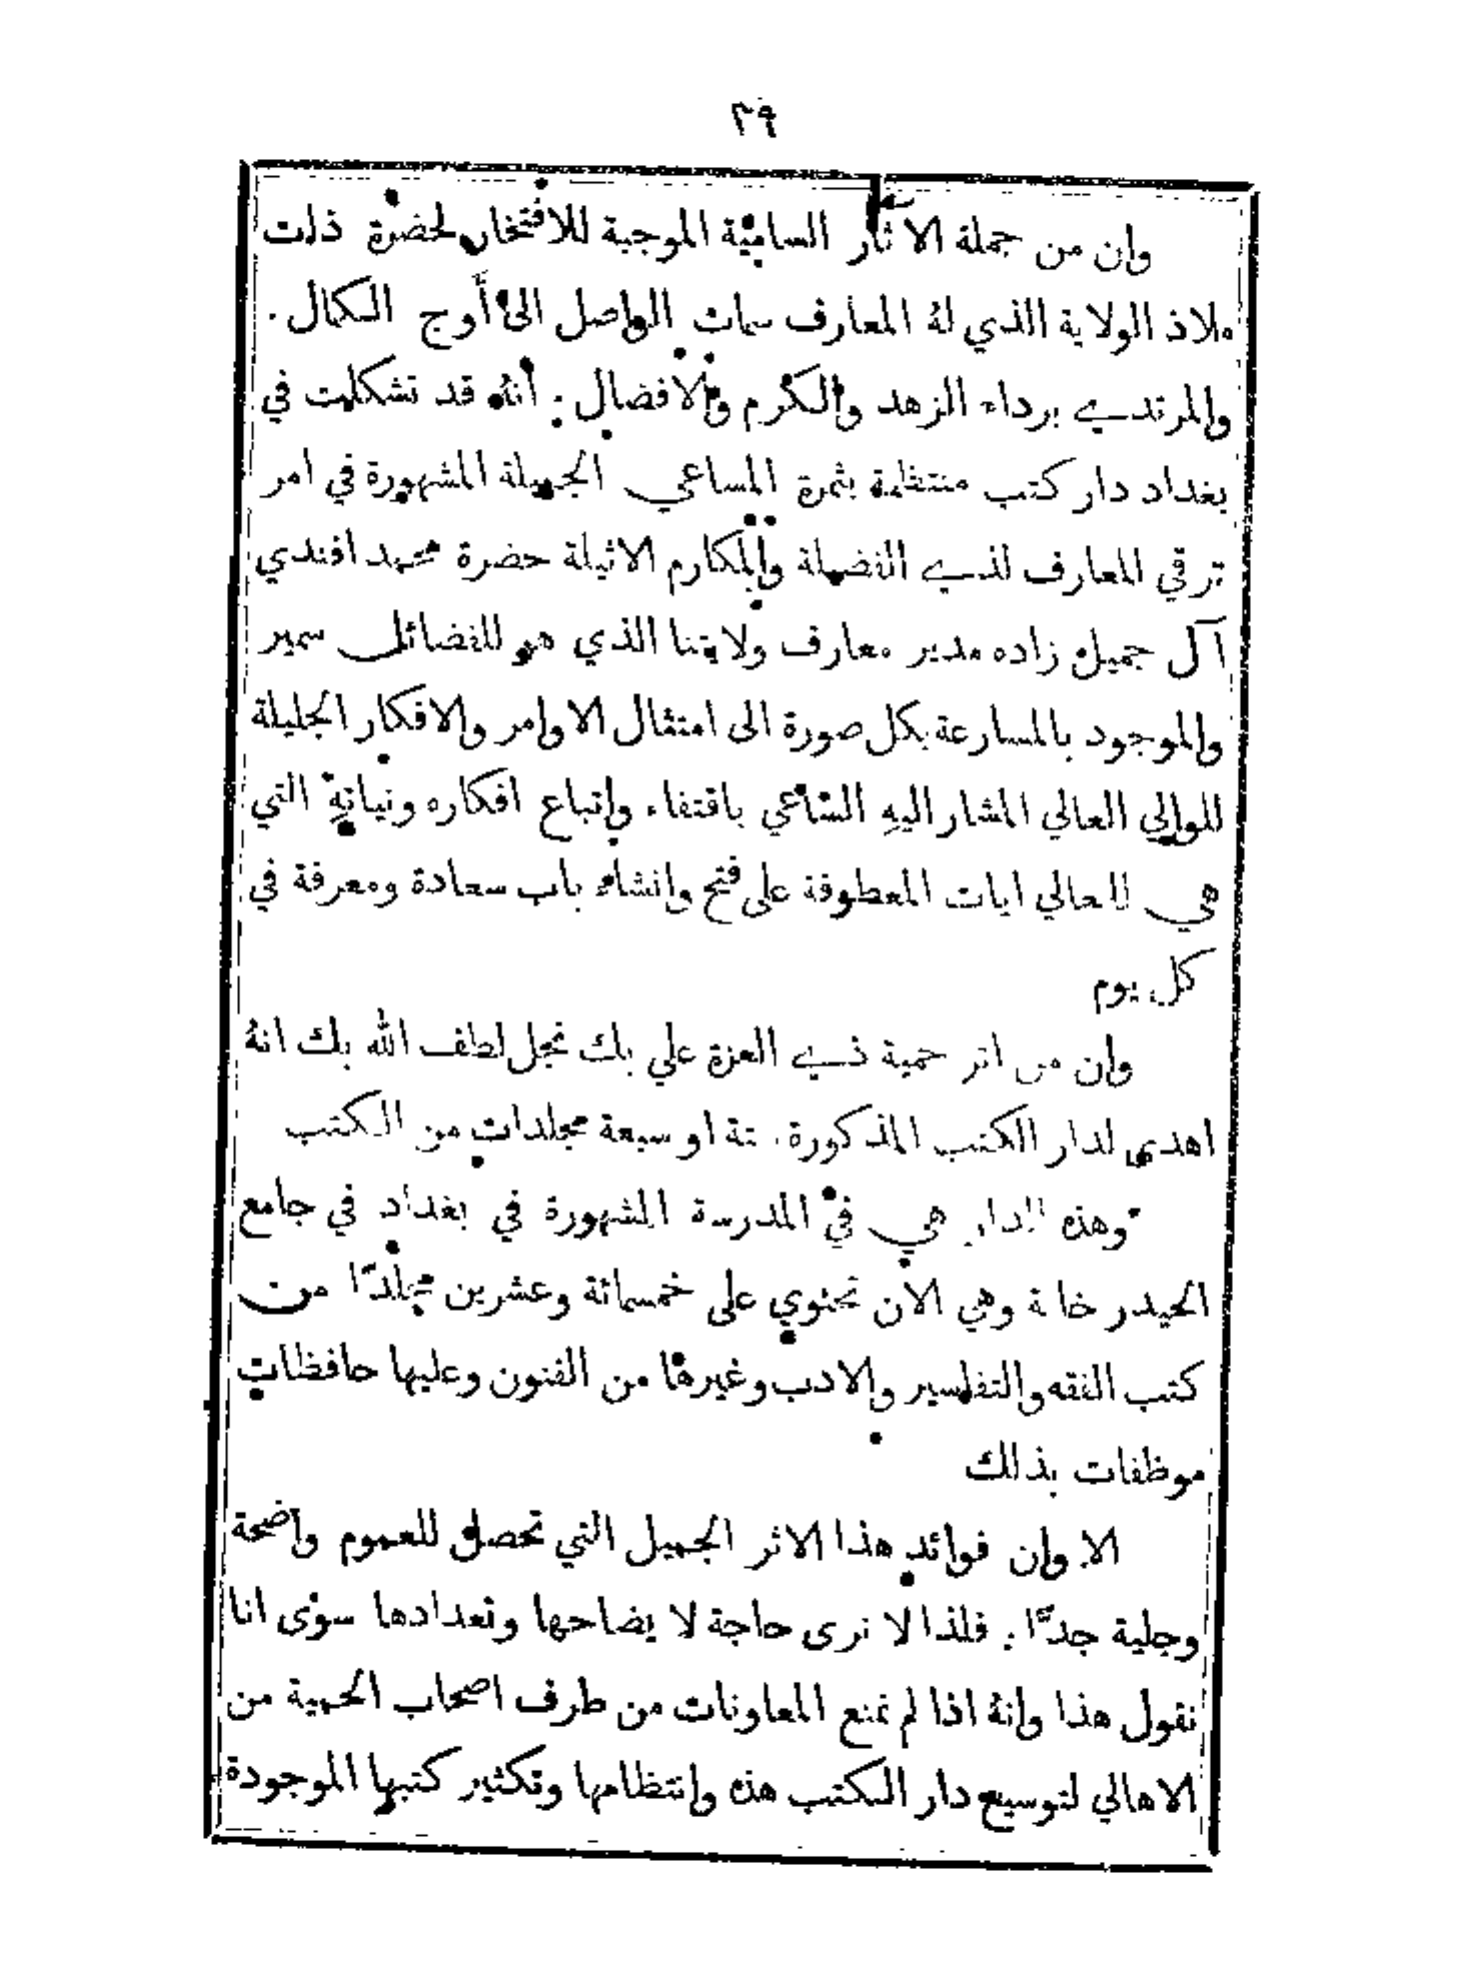 ٣٩
وان من جملة الآثار السامية الموجبة للافتخار لحضرة ذات
ملاذ الولاية الذي لهُ المعارف سمات الواصل الى أوج الكمال .
والمرتدي برداء الزهد والكرم والافضال . أنهُ قد تشكلت في
بغداد دار كتب منتظمة بثمرة المساعي الجميلة المشهورة في امر
ترقي المعارف لذي الفضيلة والمكارم الاثيلة حضرة محمد افندي
آل جميل زاده مدير معارف ولايتنا الذي هو للفضائل سمير
والموجود بالمسارعة بكل صورة الى امتثال الاوامر والافكار الجليلة
للوالي العالي المشار اليهِ الساعي باقتفاء واتباع افكاره ونياتهِ التي
هي للمعالي ايات المعطوفة على فتح وانشاء باب سعادة ومعرفة في
كل يوم
وان من اثر حمية ذي العزة علي بك نجل لطف الله بك انهُ
اهدى لدار الكتب المذكورة ستة او سبعة مجلدات من الكتب
وهذه الدار هي في المدرسة المشهورة في بغداد في جامع
الحيدر خانة وهي الآن تحتوي على خمسمائة وعشرين مجلدًا من
كتب الفقه والتفاسير والادب وغيرها من الفنون وعليها حافظات
موظفات بذلك
الا وان فوائد هذا الاثر الجميل التي تحصل للعموم واضحة
وجلية جدًّا . فلذا لا نرى حاجة لا يضاحها وتعدادها سوى انا
نقول هذا وانهُ اذا لم تمنع المعاونات من طرف اصحاب الحمية من
الاهالي لتوسيع دار الكتب هذه وانتظامها وتكثير كتبها الموجودة